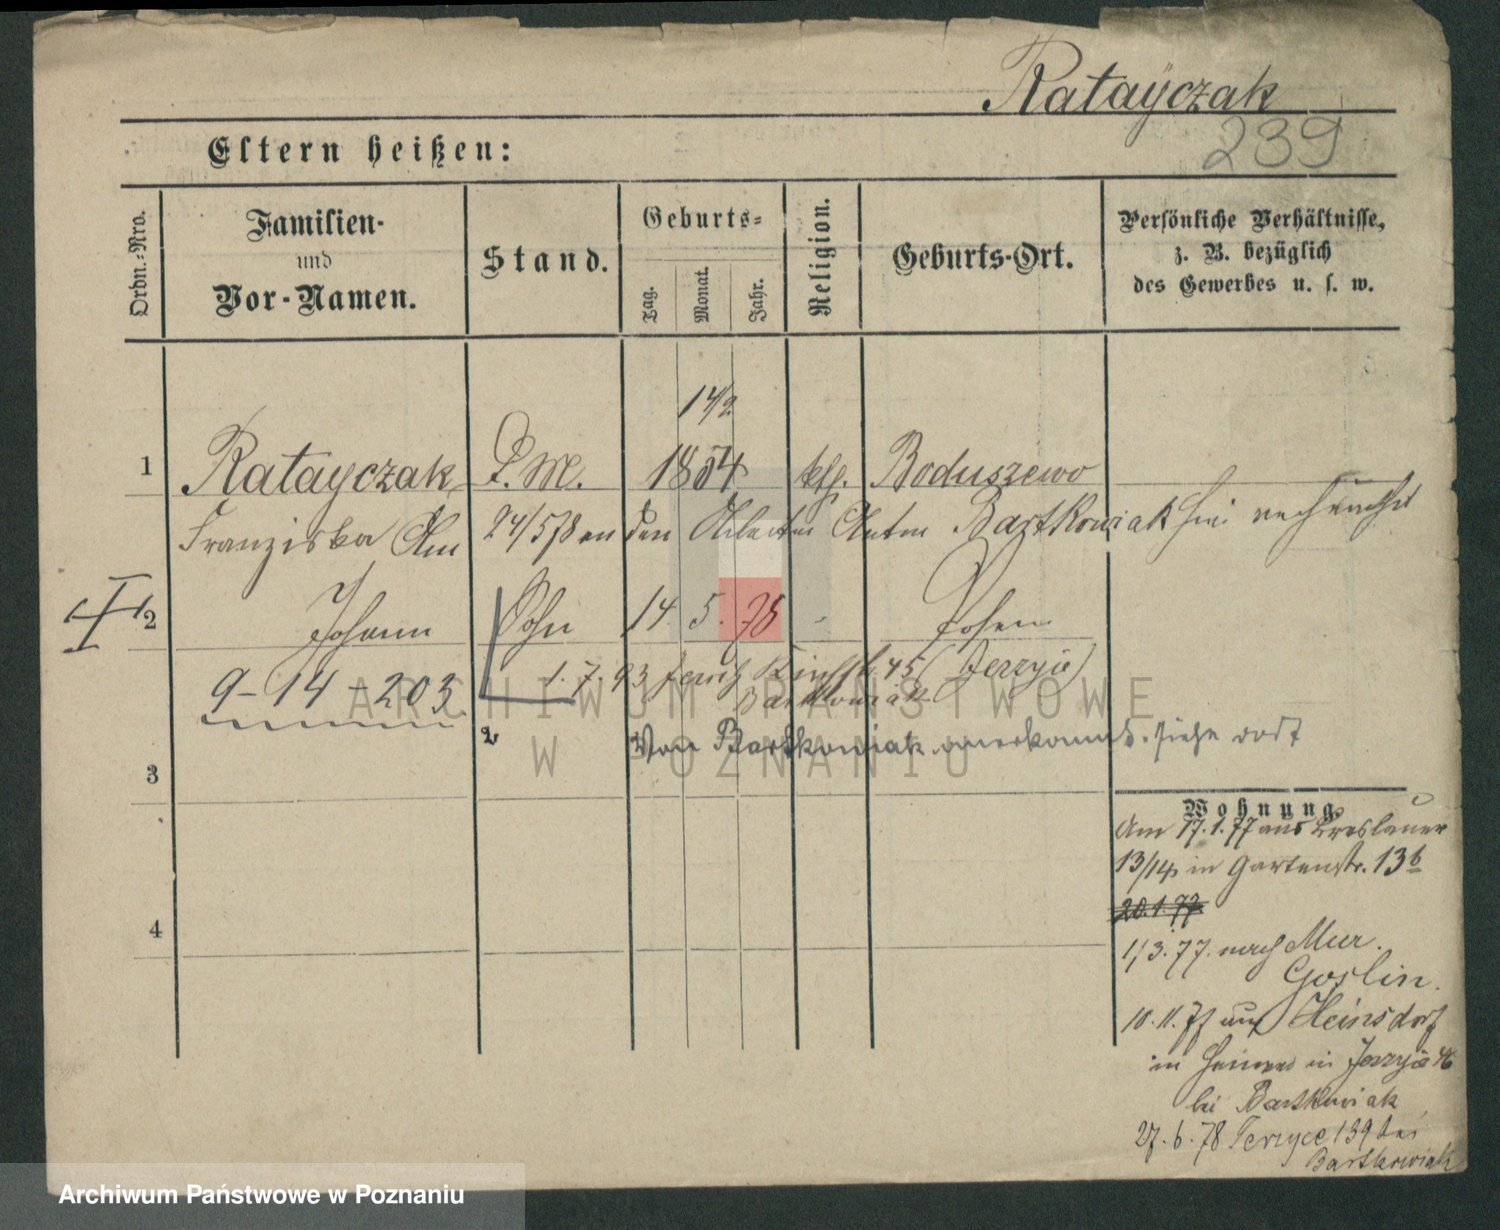 Rataÿczak
239
Eltern heißen:
Ordn.-Nro.
Familien-
und
Vor-Namen.
Stand.
Geburts-
Tag.
Monat.
Jahr.
Religion.
Geburts-Ort.
Persönliche Verhältnisse,
z. B. bezüglich
des Gewerbes u. s. w.
14/2
1 Ratayczak D.M. 1854 kth. Boduszewo
Franziska Am 24/5 78 an den Arbeiter Anton Bartkowiak hier verheirathet
2 Johann Sohn 14. 5. 78 - Posen
9-14-203 1.7.93 45 (Jerzyce)
Bartkowiak
2 Von Bartkowiak anerkannt. siehe dort
3
4
Wohnung
Am 17.1.77 aus Breslauer
13/14 in Gartenstr. 13b
20.1.77
1/3.77. nach Mur.
Goslin.
10.11.77 aus Heinsdorf
in Jerzyce
bei Bartkowiak
27.6.78 Jerzyce 139 bei
Bartkowiak
ARCHIWUM PAŃSTWOWE
W POZNANIU
Archiwum Państwowe w Poznaniu